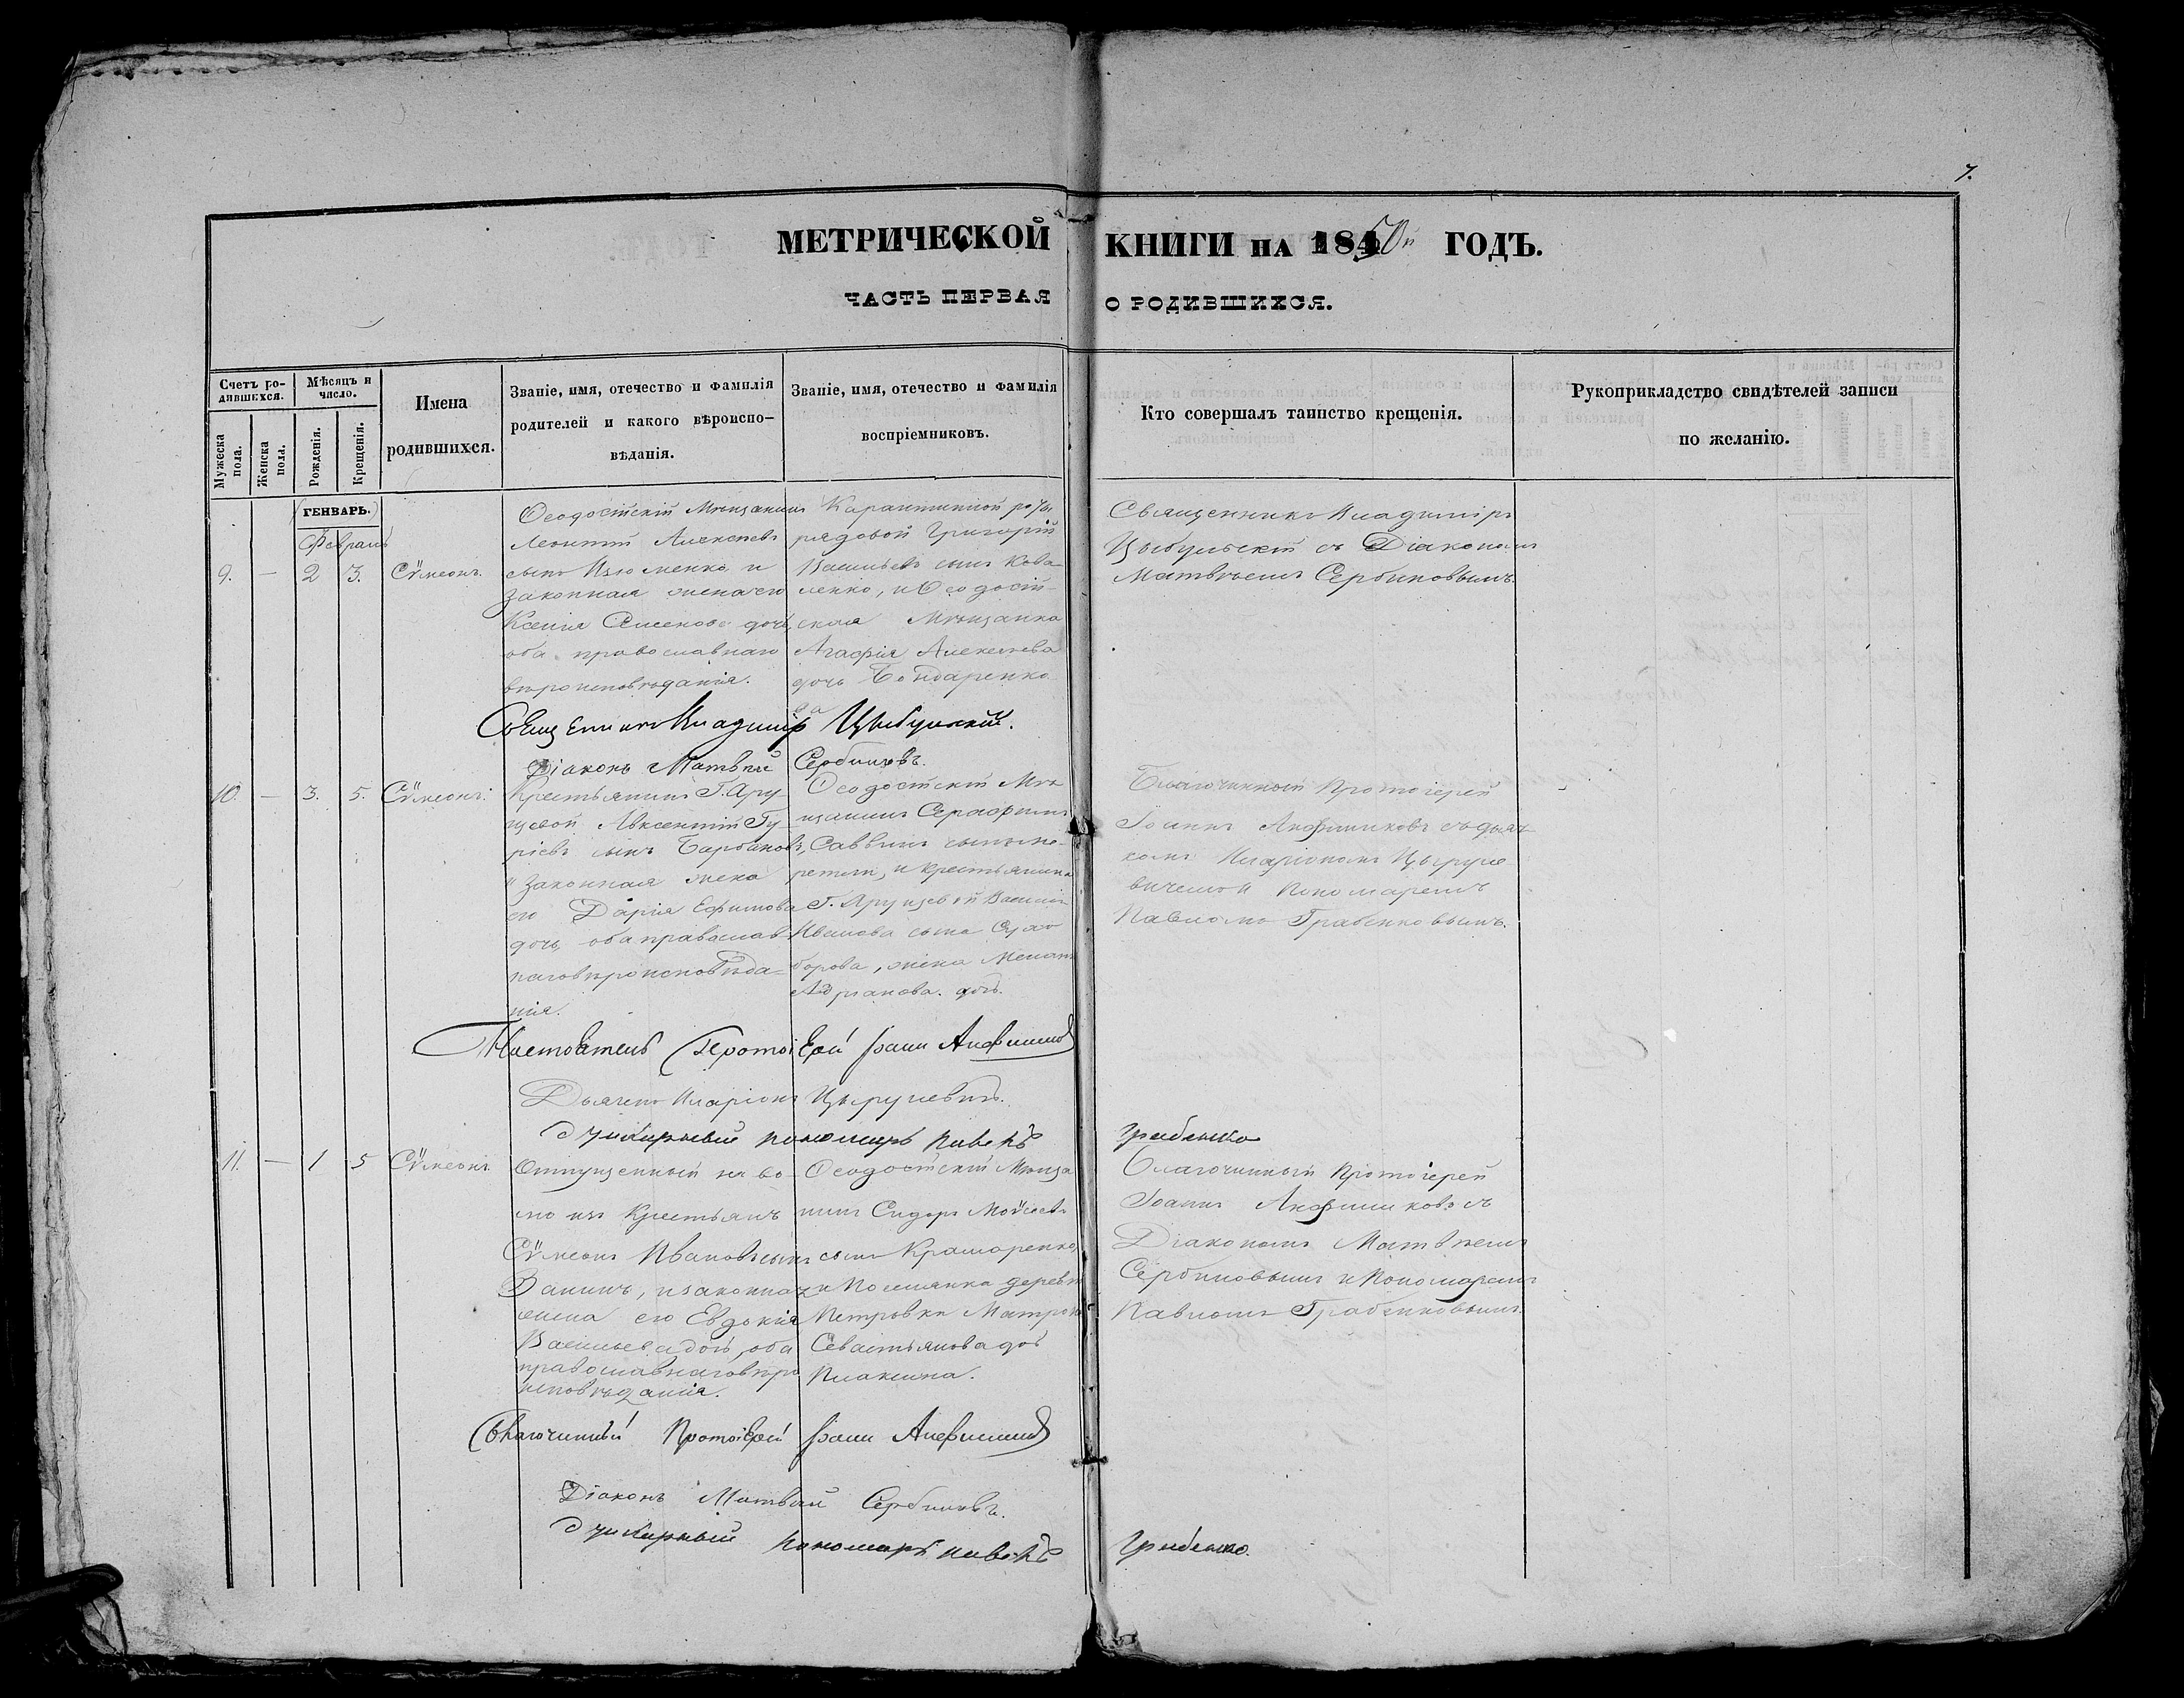 7.
МЕТРИЧЕСКОЙ КНИГИ НА 1850й ГОДЪ.
ЧАСТЬ ПЕРВАЯ О РОДИВШИХСЯ.
Счетъ ро-
дившихся.
Мужеска
пола.
Женска
пола.
Мѣсяцъ и
число.
Рожденія.
Крещенія.
Имена
родившихся.
Званіе, имя, отечество и фамилія
родителей и какого вѣроиспо-
вѣданія.
Званіе, имя, отечество и фамилія
воспріемниковъ.
Кто совершалъ таинство крещенія.
Рукоприкладство свидѣтелей записи
по желанію.
ГЕНВАРЬ.
Февраль
9. — 2 3. Сѵмеонъ.
Ѳеодосійскій Мѣщанинъ
Леонтій Алексѣевъ
сынъ Изюменко и
законная жена его
Ксенія Семенова дочь,
оба православнаго
вѣроисповѣданія.
Карантинной роты
рядовой Григорій
Васильевъ сынъ Кова-
ленко, и Ѳеодосій-
ская Мѣщанка
Агафія Алексѣева
дочь Бондаренко
Священникъ Владиміръ
Цыбульскій съ Діакономъ
Матвѣемъ Сербиновымъ.
Священникъ Владиміръ Цыбульскій.
Діаконъ Матвѣй Сербиновъ.
10. — 3. 5. Сѵмеонъ.
Крестьянинъ Г.
Авксентій Гу-
ріевъ сынъ
законная жена
его Дарія Ефимова
дочь, оба православ-
наго вѣроисповѣда-
нія.
Ѳеодосійскій Мѣ-
щанинъ
Саввинъ сынъ
и крестьянина
Г. Василія
Иванова сына
жена
Адріанова дочь.
Благочинный Протоіерей
Іоаннъ Анфимиковъ съ дьяч-
комъ Иларіономъ Цыруле-
вичемъ и Пономаремъ
Павломъ Грабенковымъ.
Протоіерей Іоаннъ
Дьячекъ Иларіонъ Цырулевичъ.
пономарь Павелъ Грабенко
11. — 1 5 Сѵмеонъ.
Отпущенный на во-
лю изъ Крестьянъ
Сѵмеонъ Ивановъ сынъ
и законная
жена его Евдокія
Васильева дочь, оба
православнаго вѣро
исповѣданія.
Ѳеодосійскій Мѣща
нинъ Сидоръ Моѵсеевъ
сынъ Крамаренко,
и Поселянка деревни
Петровки Матрона
Севастьянова дочь
Плаксина.
Благочинный Протоіерей
Іоаннъ Анфимиковъ съ
Діакономъ Матвѣемъ
Сербиновымъ и Пономаремъ
Павломъ Грабенковымъ.
Благочинный Протоіерей Іоаннъ
Діаконъ Матвѣй Сербиновъ.
пономарь Павелъ Грабенко.